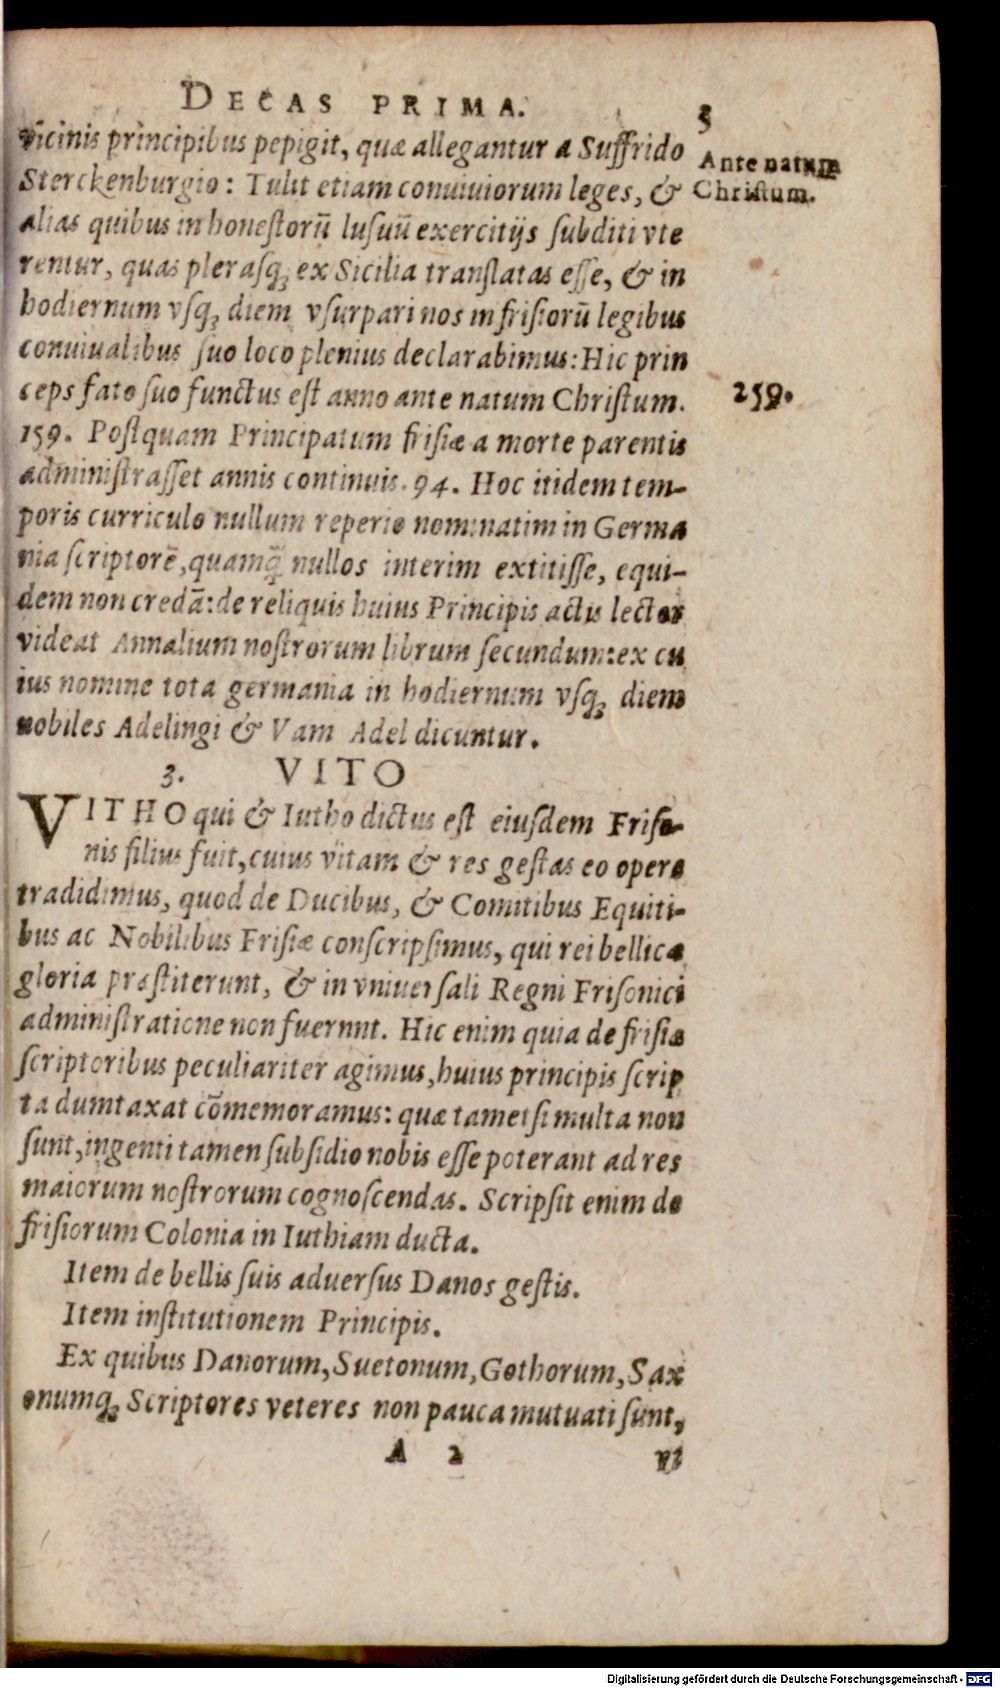 DECAS PRIMA. 5
vicinis principibus pepigit, quæ allegantur a Suffrido
Ante natum
Sterckenburgio: Tulit etiam conuiuiorum leges, &
Christum.
alias quibus in honestorū lusuū exercitijs subditi vte
rentur, quas plerasq; ex Sicilia translatas esse, & in
hodiernum vsq; diem vsurpari nos in frisiorū legibus
conuiualibus suo loco plenius declarabimus: Hic prin
ceps fato suo functus est anno ante natum Christum.
259.
159. Postquam Principatum frisiæ a morte parentis
administrasset annis continuis. 94. Hoc itidem tem-
poris curriculo nullum reperio nominatim in Germa
nia scriptorē, quamq̃ nullos interim extitisse, equi-
dem non credā: de reliquis huius Principis actis lector
videat Annalium nostrorum librum secundum: ex cu
ius nomine tota germania in hodiernum vsq; diem
nobiles Adelingi & Vam Adel dicuntur.
3. VITO
VITHO qui & Iutho dictus est eiusdem Friso-
nis filius fuit, cuius vitam & res gestas eo opere
tradidimus, quod de Ducibus, & Comitibus Equiti-
bus ac Nobilibus Frisiæ conscripsimus, qui rei bellicæ
gloria præstiterunt, & in vniuersali Regni Frisonici
administratione non fuernnt. Hic enim quia de frisiæ
scriptoribus peculiariter agimus, huius principis scrip
ta dumtaxat cōmemoramus: quæ tametsi multa non
sunt, ingenti tamen subsidio nobis esse poterant ad res
maiorum nostrorum cognoscendas. Scripsit enim de
frisiorum Colonia in Iuthiam ducta.
Item de bellis suis aduersus Danos gestis.
Item institutionem Principis.
Ex quibus Danorum, Suetonum, Gothorum, Sax
onumq; Scriptores veteres non pauca mutuati sunt,
A 2 vt
Digitalisierung gefördert durch die Deutsche Forschungsgemeinschaft - DFG